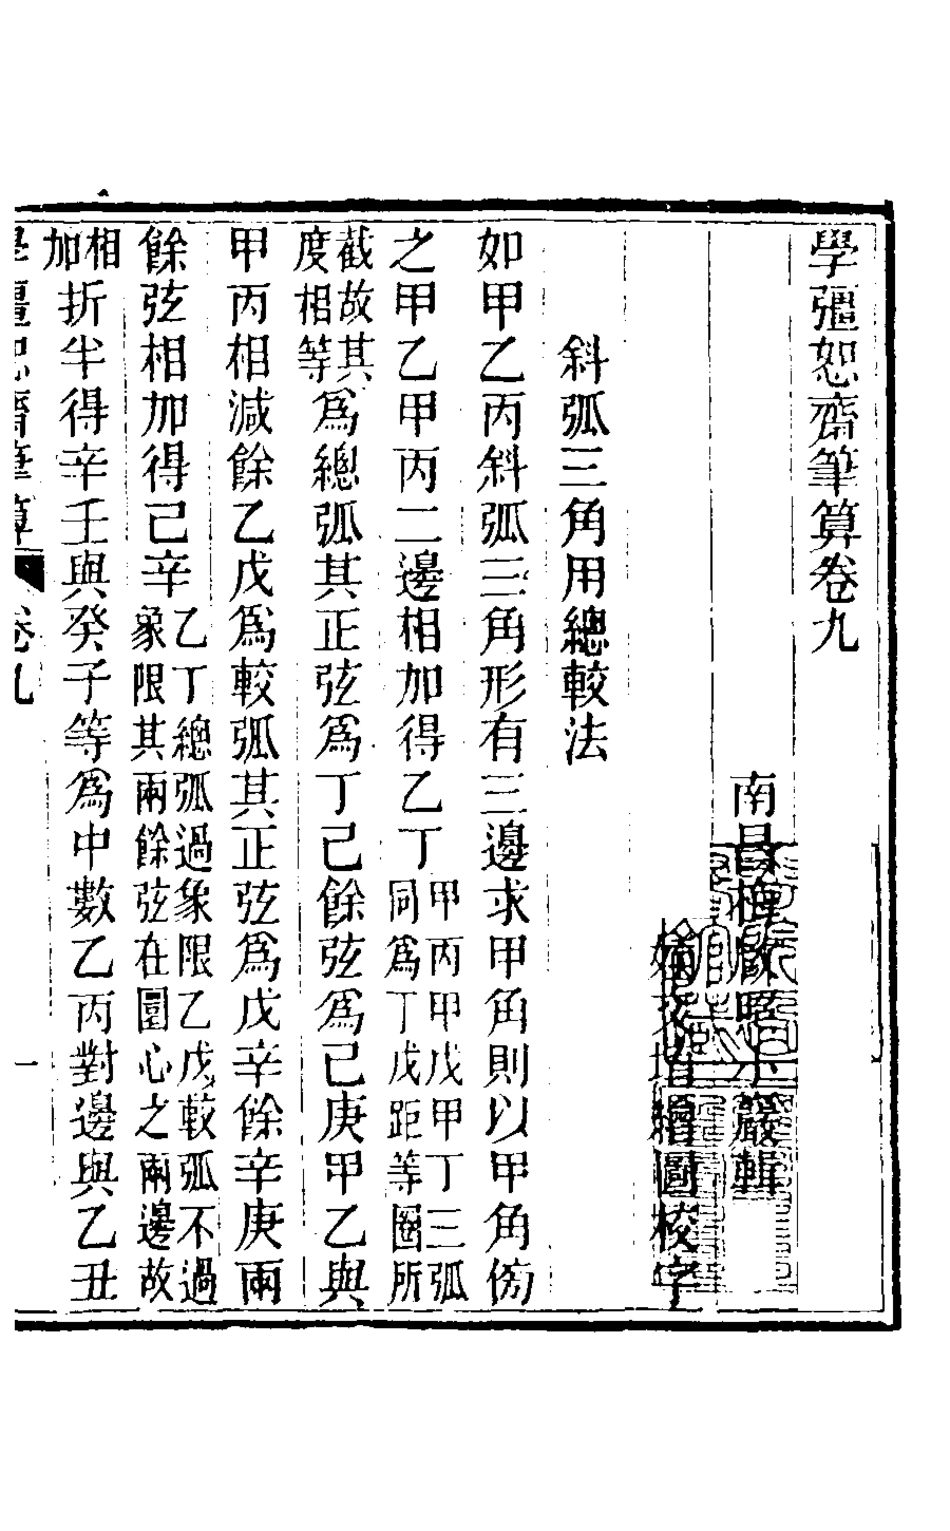 學彊恕齋筆算卷九
南昌梅啟照小巖輯
文堉繪圖校字
斜弧三角用總較法
如甲乙丙斜弧三角形有三邊求甲角則以甲角傍
之甲乙甲丙二邊相加得乙丁甲丙甲戊甲丁三弧同為丁戊距等圈所
截故其度相等為總弧其正弦為丁己餘弦為己庚甲乙與
甲丙相減餘乙戊為較弧其正弦為戊辛餘辛庚兩
餘弦相加得己辛乙丁總弧過象限乙戊較弧不過象限其兩餘弦在圜心之兩邊故
相加折半得辛壬與癸子等為中數乙丙對邊與乙丑
學彊恕齋筆算 卷九 一